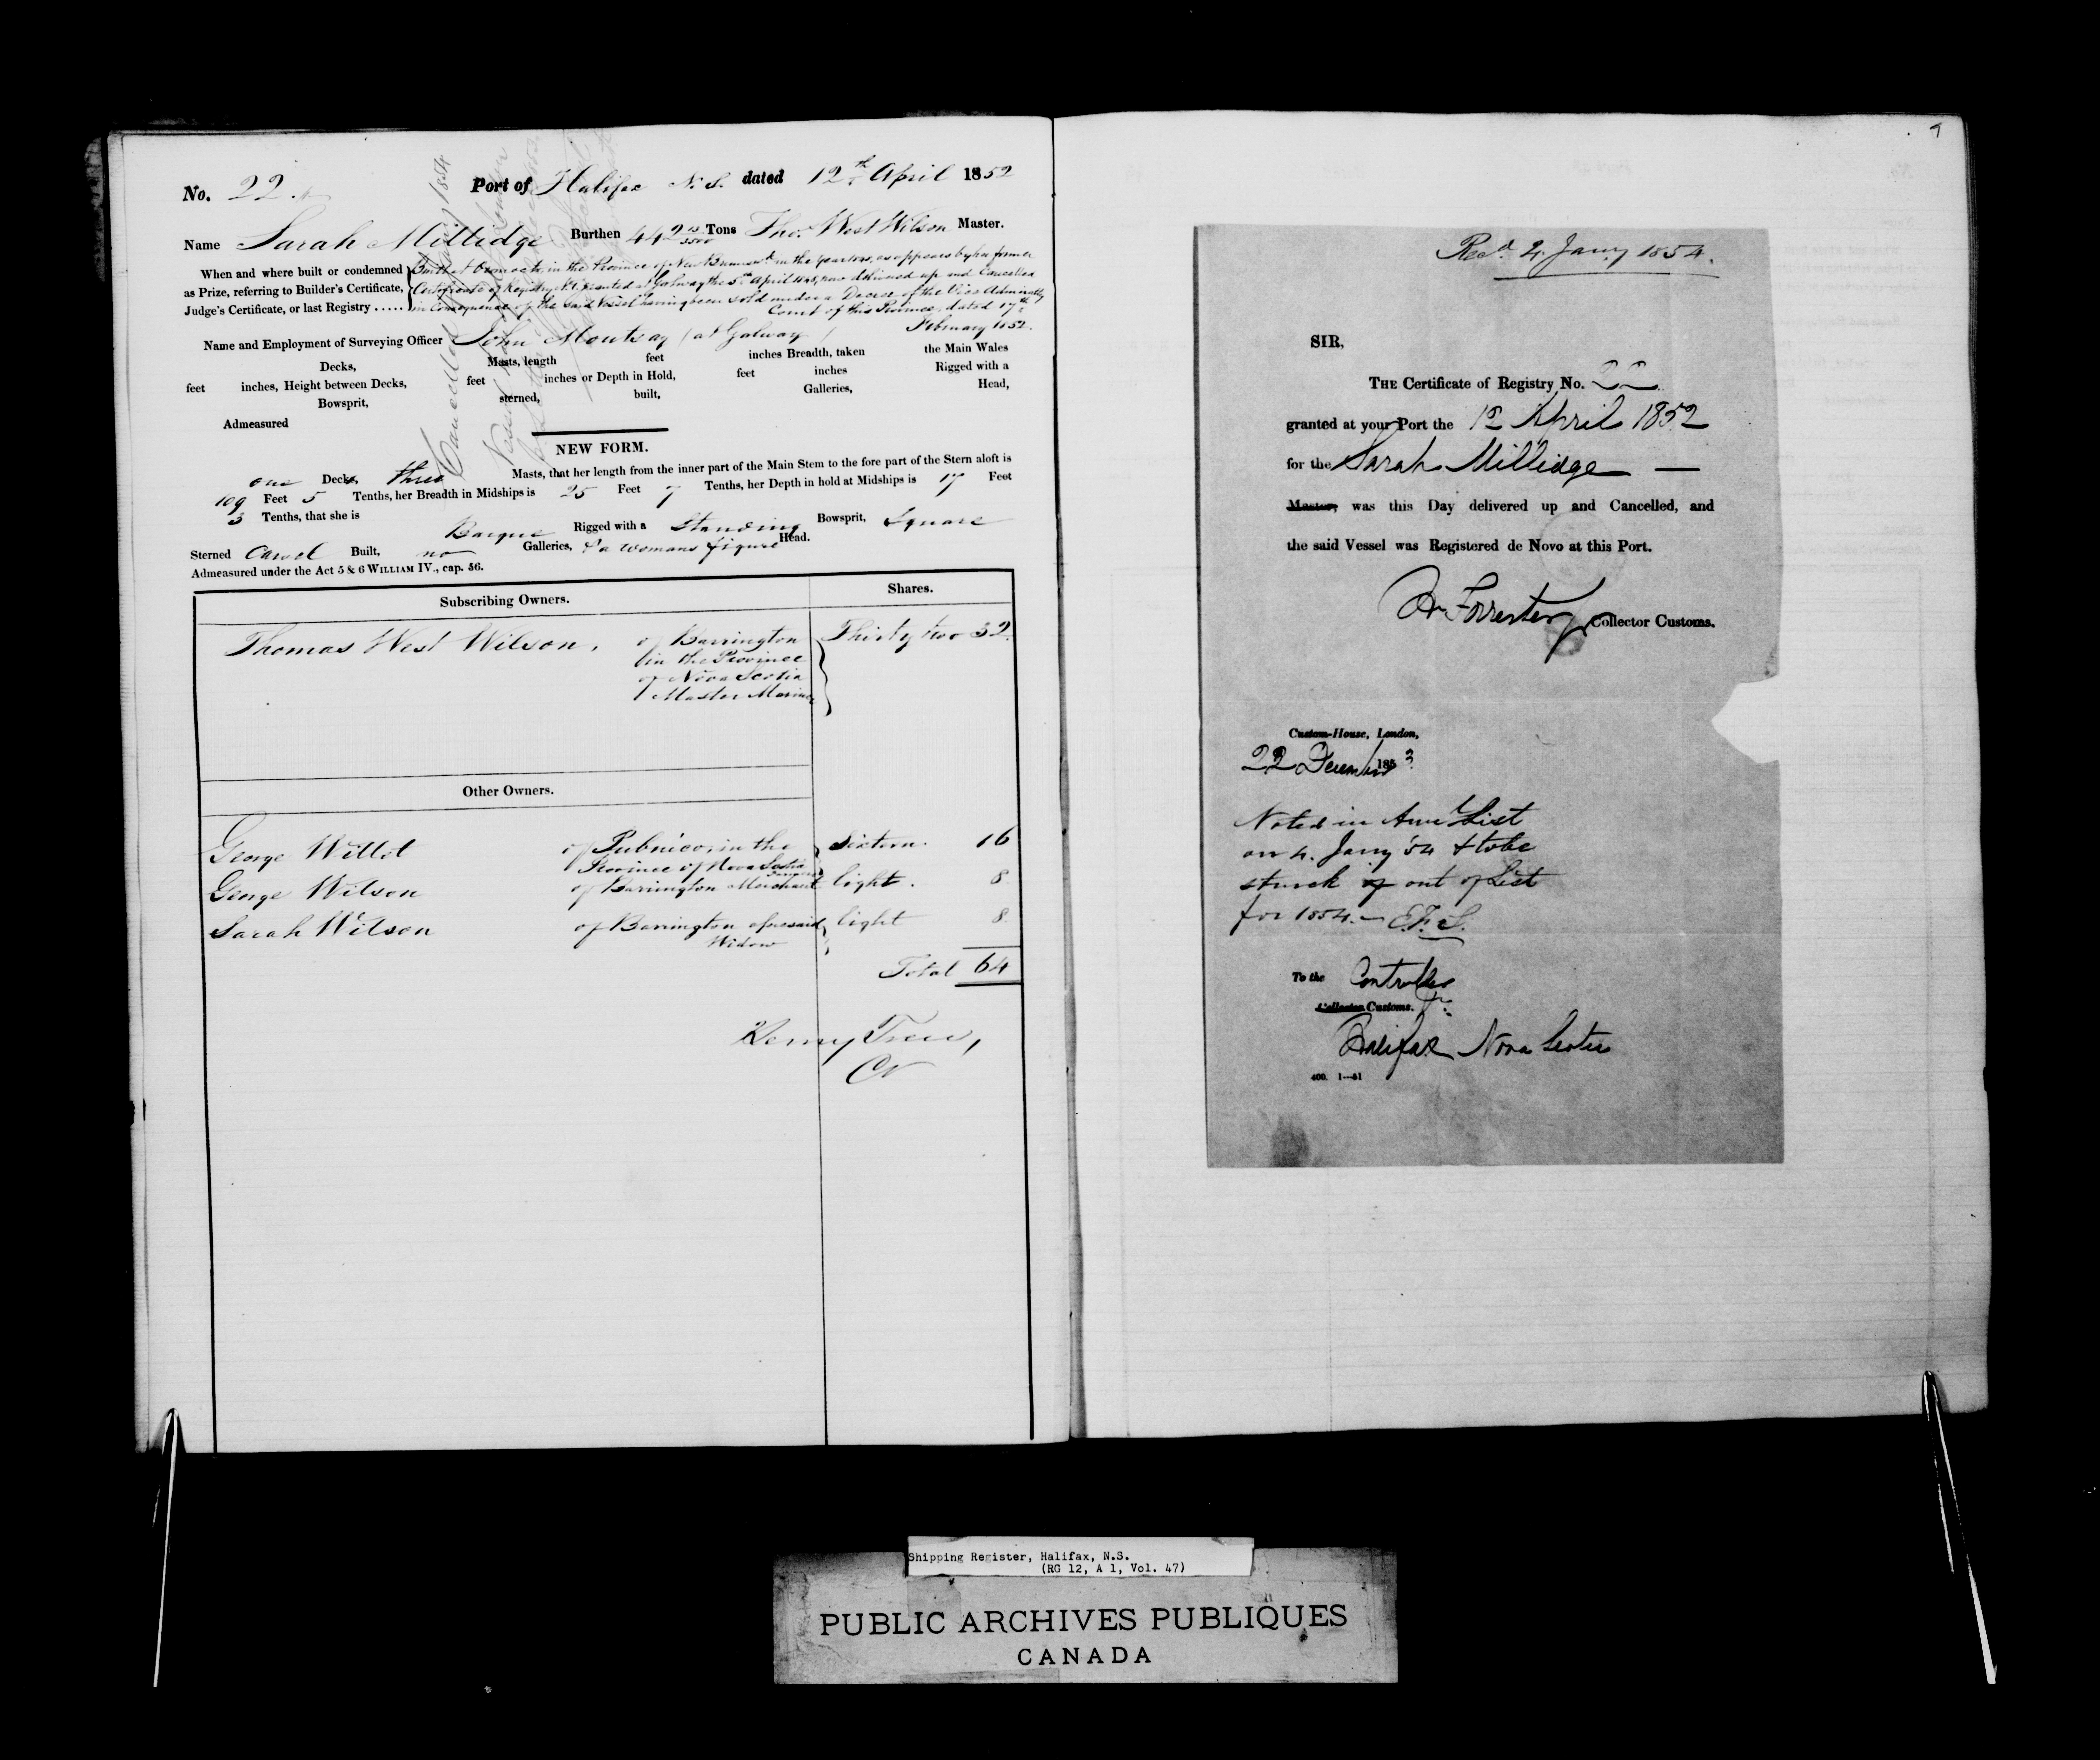 No. 22. Port of Halifax N. S. dated 12th April 1852
Name Sarah Millidge Burthen 442 13/3500 Tons Tho. West Wilson Master.
When and where built or condemned
as Prize, referring to Builder's Certificate,
Judge's Certificate, or last Registry .....
Built at in the Province of New Brunswk in the year as appears by her former
Certificate of Registry granted at Galway the 5th April now delivered up and Cancelled
in consequence of the said Vessel having been sold under a Decree of the Vice Admiralty
Court of this Province, dated 17th
February 1852.
Name and Employment of Surveying Officer John (at Galway)
Decks, Masts, length feet inches Breadth, taken the Main Wales
feet inches, Height between Decks, feet inches or Depth in Hold, feet inches Rigged with a
Bowsprit, sterned, built, Galleries, Head,
Admeasured
NEW FORM.
one Decks, three Masts, that her length from the inner part of the Main Stem to the fore part of the Stern aloft is
109 Feet 5 Tenths, her Breadth in Midships is 25 Feet 7 Tenths, her Depth in hold at Midships is 17 Feet
3 Tenths, that she is Barque Rigged with a Standing Bowsprit, Square
Sterned Carvel Built, no Galleries, & a womans figure Head.
Admeasured under the Act 5 & 6 WILLIAM IV., cap. 56.
Subscribing Owners. Shares.
Thomas West Wilson, of Barrington Thirty two 32
in the Province
of Nova Scotia
Master Mariner
Other Owners.
George Willet of Pubnico, in the Sixteen. 16
Province of Nova Scotia
George Wilson of Barrington Merchant Eight. 8
Sarah Wilson of Barrington aforesaid Eight 8
Widow
Total 64
Henry Trew,
Cancelled
9
Recd. 4. Jany 1854.
SIR,
THE Certificate of Registry No. 22
granted at your Port the 12 April 1852
for the Sarah Millidge —
Master, was this Day delivered up and Cancelled, and
the said Vessel was Registered de Novo at this Port.
Forrester Collector Customs.
Custom-House, London,
22 December 1853
Noted in List
on 4. Jany 54 & to be
struck out of List
for 1854.— E.F.S.
To the Controller
Collector Customs.
Halifax Nova Scotia
400. 1—51
Shipping Register, Halifax, N.S.
(RG 12, A 1, Vol. 47)
PUBLIC ARCHIVES PUBLIQUES
CANADA